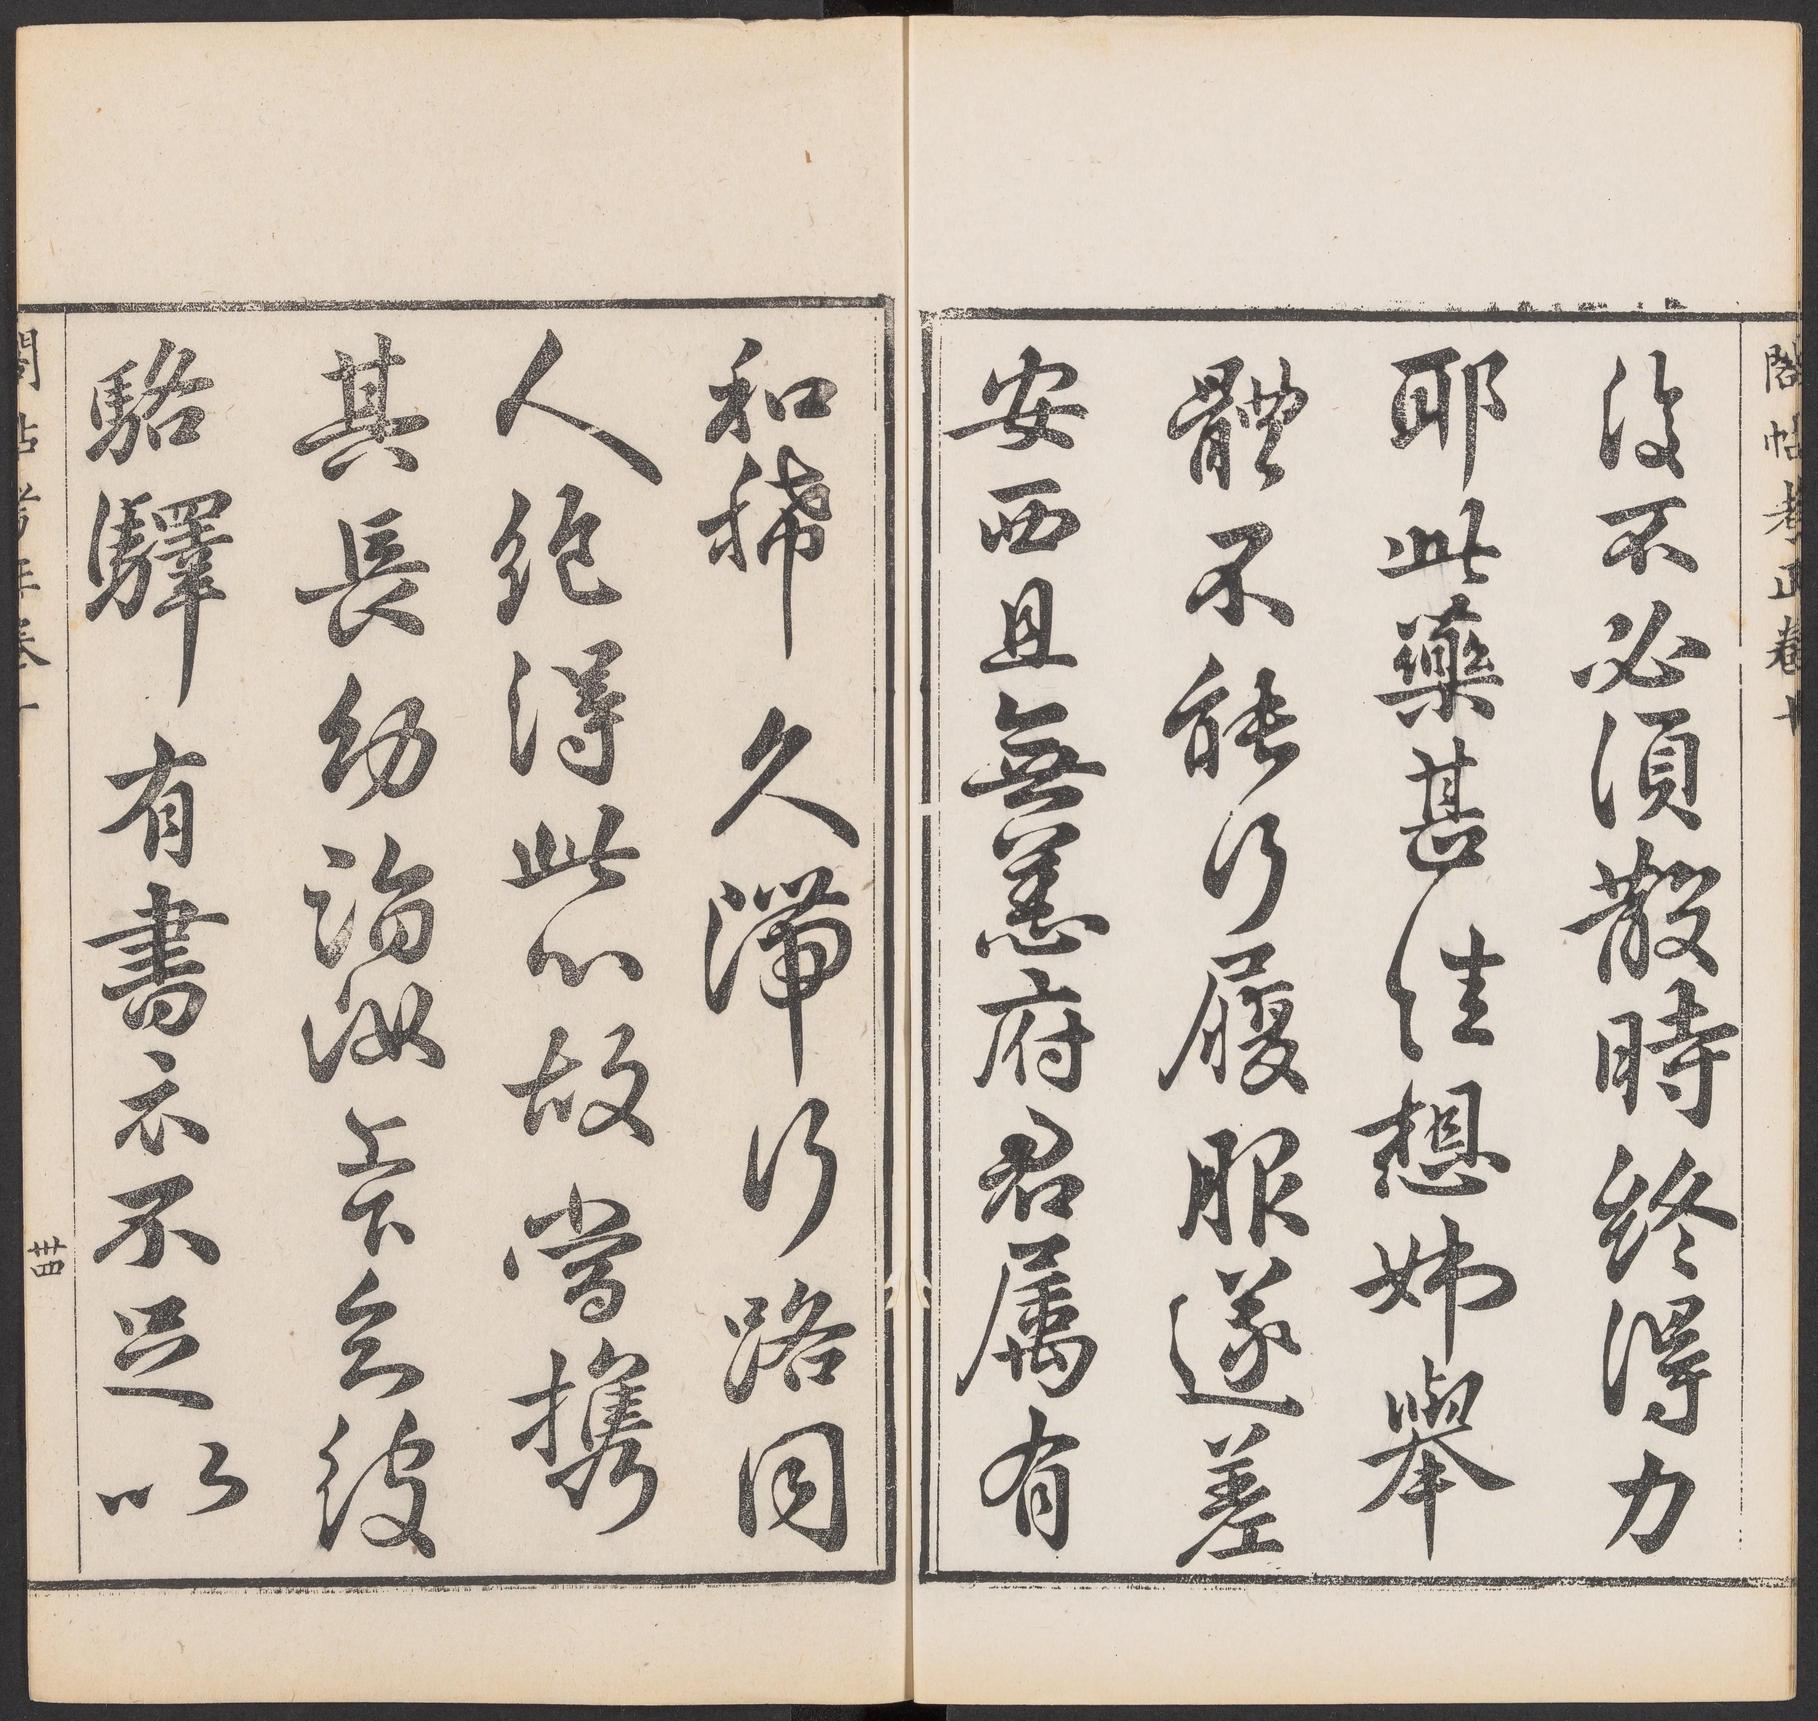 閣帖考正卷十
復不必須散時終得力
耶此藥甚佳想姊舉
體不能行履服遂差
安西且無恙府君屬有
和稀久滯行路同
人絕得此心故嘗攜
其長幼詣汝上下至彼
駱驛有書衣不足以
閣帖考正卷十
廿四